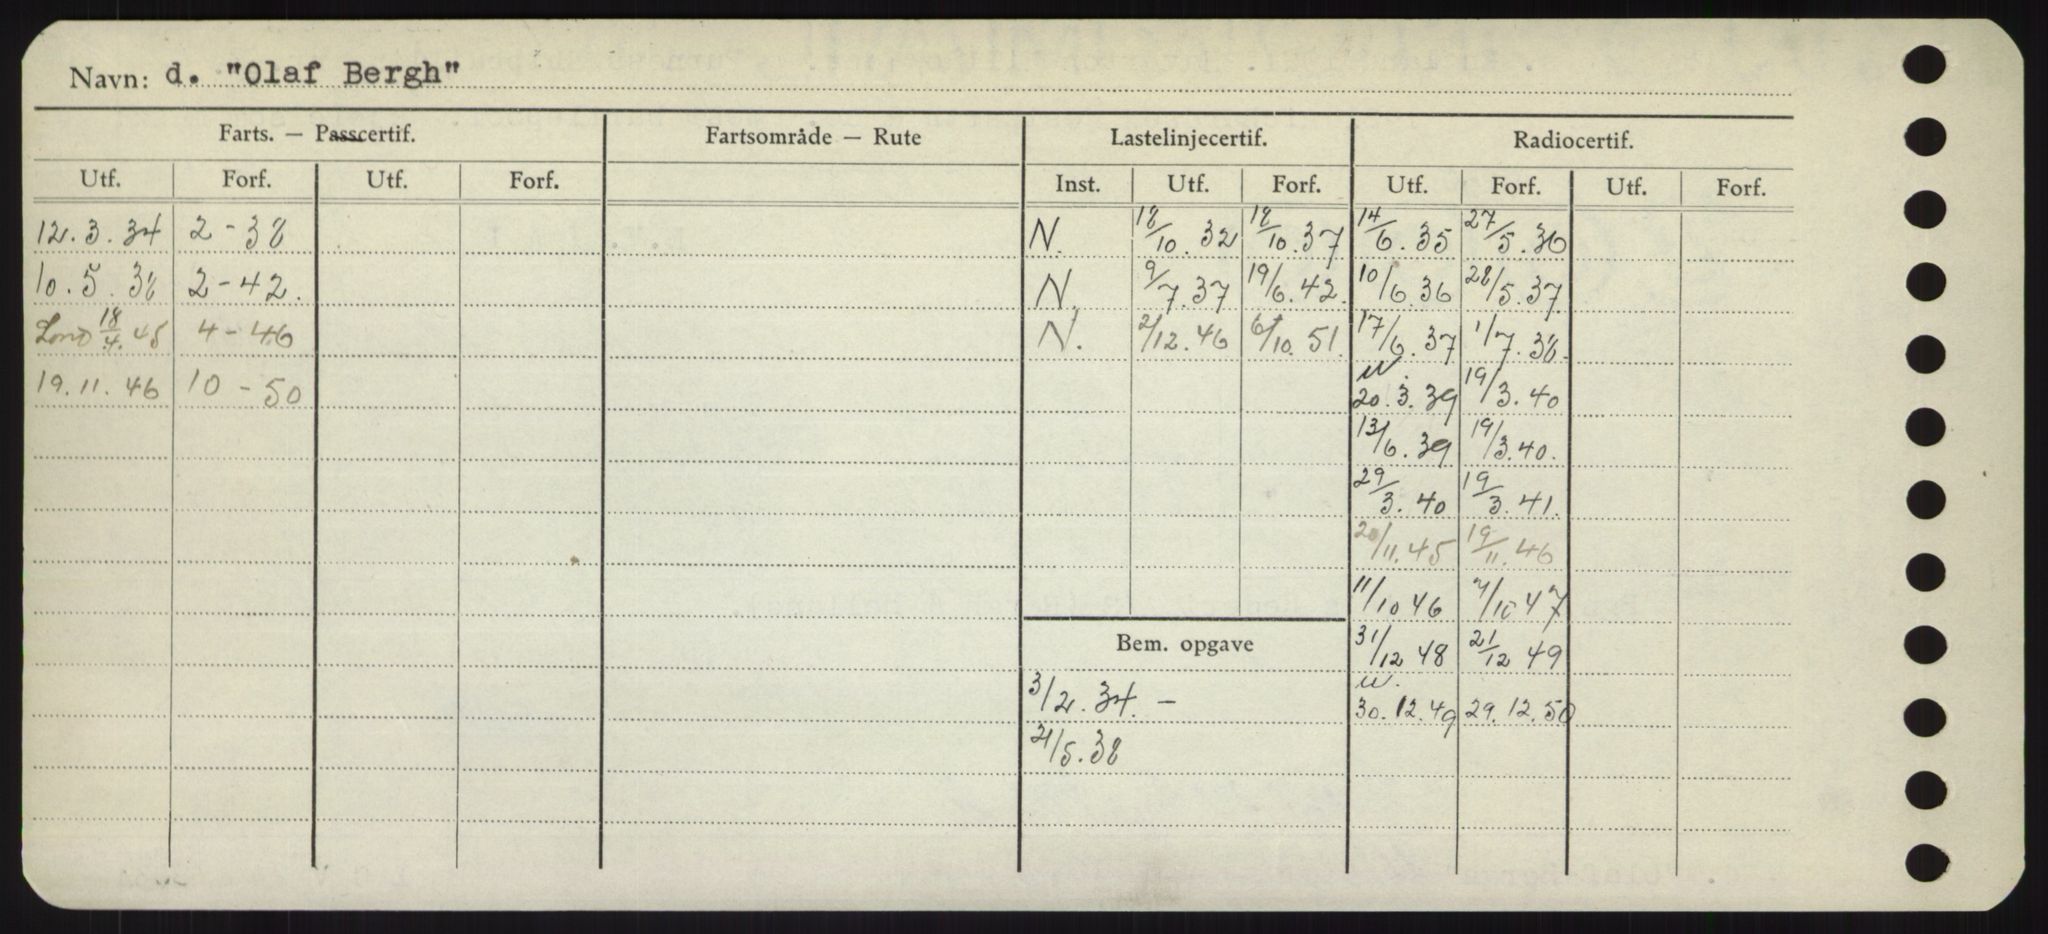 Navn: d. "Olaf Bergh"
Farts. — Passcertif. Fartsområde — Rute Lastelinjecertif. Radiocertif.
Utf. Forf. Utf. Forf. Inst. Utf. Forf. Utf. Forf. Utf. Forf.
12.3.34 2-38 N. 18/10.32 18/10.37 14/6.35 27/5.36
10.5.38 2-42. N. 9/7.37 19/6.42. 10/6.36 28/5.37
Lond 18/4.45 4-46 N. 2/12.46 6/10.51. 17/6.37 1/7.38.
19.11.46 10-50 20.3.39 19/3.40
13/6.39 19/3.40.
29/3.40 19/3.41.
20/11.45 19/11.46
11/10 46 /10 47
Bem. opgave 31/12 48 21/12 49
3/2.34. — 30.12.49 29.12.50
/5.38